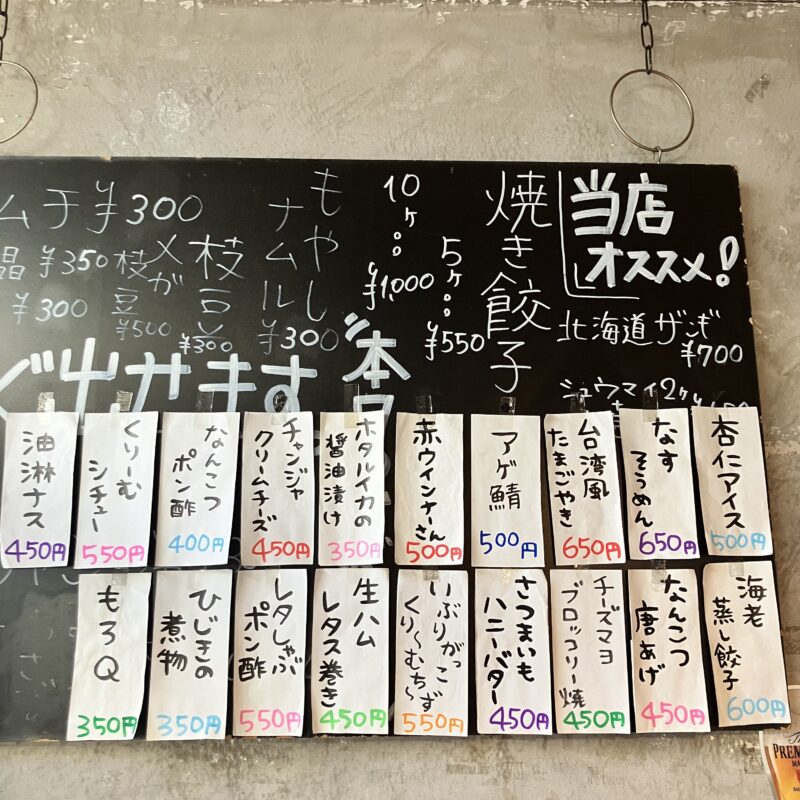 当店
オススメ!
北海道ザンギ
¥700
シュウマイ2ケ
焼き餃子
5ケ
¥550
10ケ
¥1,000
もやし
ナムル
¥300
枝豆
¥300
メガ
枝豆
¥500
ムチ ¥300
¥350
¥300
本日
かます
杏仁アイス
500円
なす
そうめん
650円
台湾風
たまごやき
650円
アゲ鯖
500円
赤ウインナーさん
500円
ホタルイカの
醤油漬け
350円
チャンジャ
クリームチーズ
450円
なんこつ
ポン酢
400円
くりーむ
シチュー
550円
油淋ナス
450円
海老
蒸し餃子
600円
なんこつ
唐あげ
450円
チーズマヨ
ブロッコリー焼
450円
さつまいも
ハニーバター
450円
いぶりがっこ
くり〜むち〜ず
550円
生ハム
レタス巻き
450円
レタしゃぶ
ポン酢
550円
ひじきの
煮物
350円
もろQ
350円